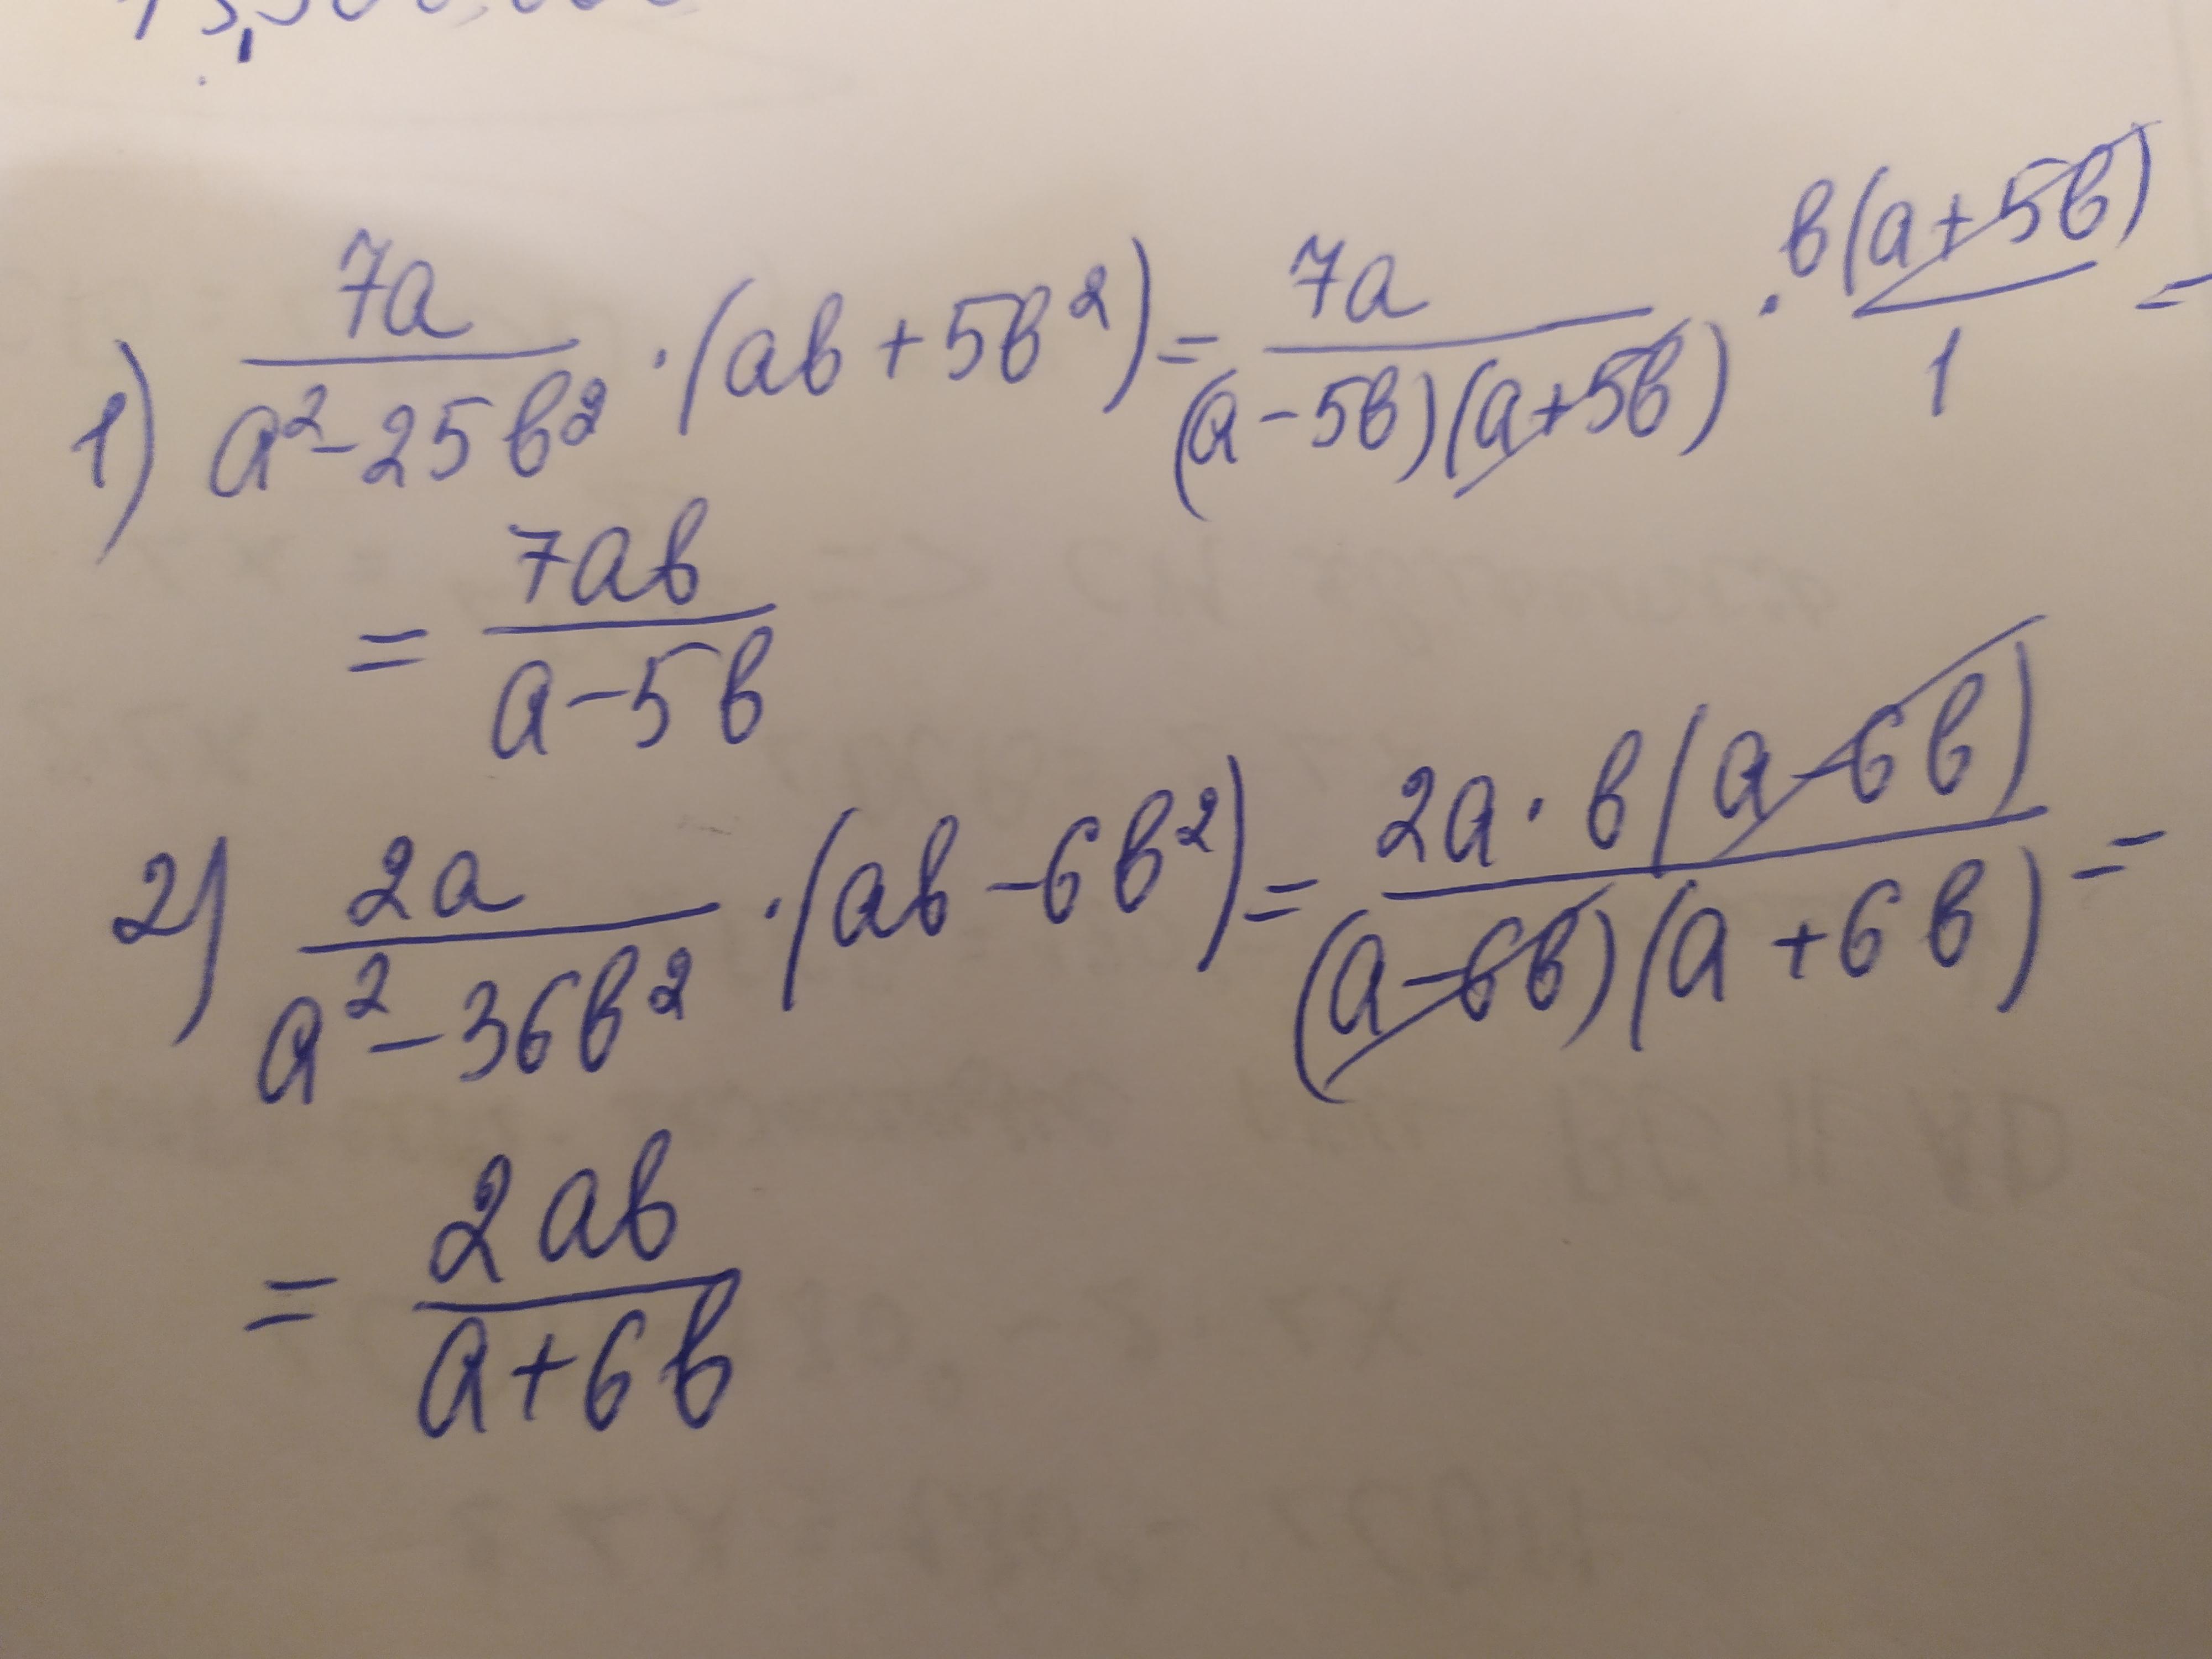 1) 7a/(a²-25b²) · (ab+5b²) = 7a/((a-5b)(a+5b)) · b(a+5b)/1 =
= 7ab/(a-5b)
2) 2a/(a²-36b²) · (ab-6b²) = 2a·b(a-6b)/((a-6b)(a+6b)) =
= 2ab/(a+6b)